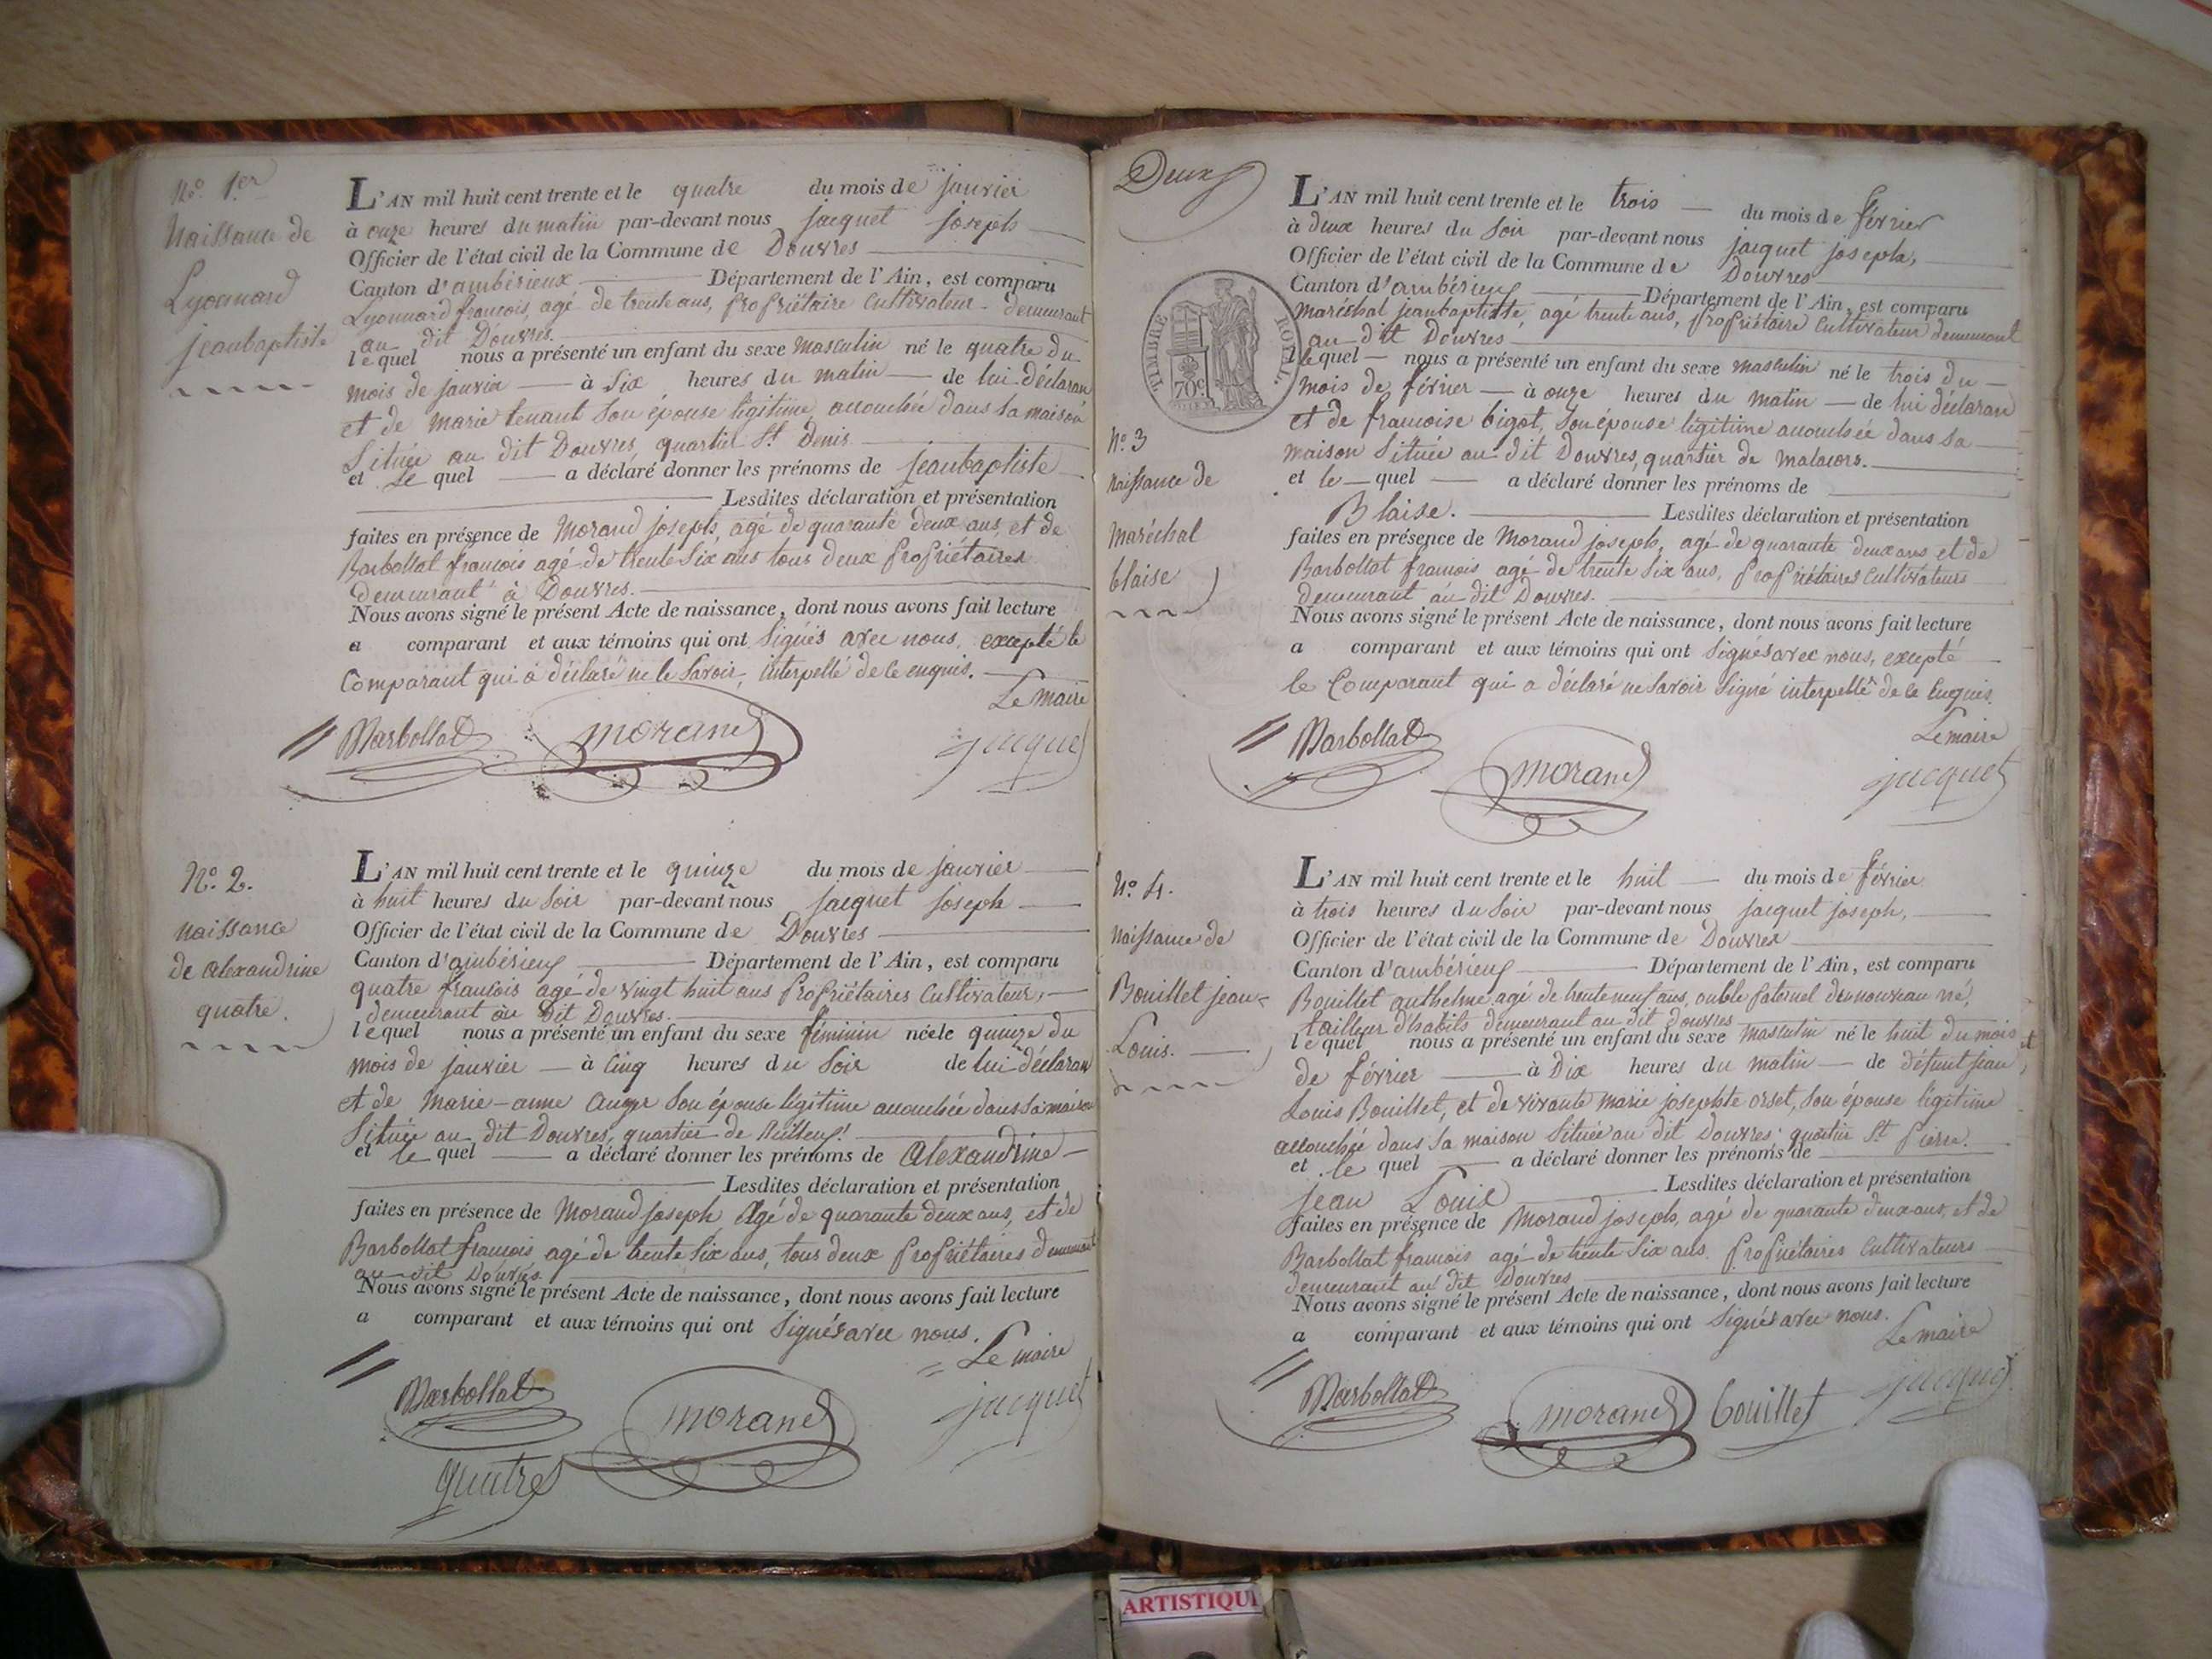 N.o 1.er
Naissance de
Lyonnard
jeanbaptiste
L'AN mil huit cent trente et le quatre du mois de janvier
à onze heures du matin par-devant nous jacquet joseph
Officier de l'état civil de la Commune de Douvres
Canton d'ambérieux Département de l'Ain, est comparu
Lyonnard francois, agé de trente ans, propriétaire Cultivateur demeurant
au dit Douvres.
lequel nous a présenté un enfant du sexe masculin né le quatre du
mois de janvier à six heures du matin de lui déclaran
et de marie tenant son épouse légitime accouchée dans sa maison
située au dit Douvres, quartier St Denis
et le quel a déclaré donner les prénoms de jeanbaptiste
Lesdites déclaration et présentation
faites en présence de Morand joseph, agé de quarante deux ans, et de
Barbollat francois agé de trente six ans tous deux propriétaires
demeurant à Douvres.
Nous avons signé le présent Acte de naissance, dont nous avons fait lecture
a comparant et aux témoins qui ont signés avec nous, excepté le
Comparant qui a déclaré ne le savoir, interpellé de ce enquis.
Le maire
Barbollat morand jacquet
N.o 2.
naissance
de alexandrine
quatre.
L'AN mil huit cent trente et le quinze du mois de janvier
à huit heures du soir par-devant nous jacquet joseph
Officier de l'état civil de la Commune de Douvres
Canton d'ambérieux Département de l'Ain, est comparu
quatre francois agé de vingt huit ans propriétaires Cultivateur,
demeurant au dit Douvres.
lequel nous a présenté un enfant du sexe féminin née le quinze du
mois de janvier à cinq heures du soir de lui déclaran
et de marie-anne son épouse légitime accouchée dans sa maison
située au dit Douvres, quartier de
et le quel a déclaré donner les prénoms de alexandrine
Lesdites déclaration et présentation
faites en présence de Morand joseph agé de quarante deux ans, et de
Barbollat francois agé de trente six ans, tous deux propriétaires demeurant
au dit Douvres.
Nous avons signé le présent Acte de naissance, dont nous avons fait lecture
a comparant et aux témoins qui ont signés avec nous.
Le maire
Barbollat morand jacquet
quatre
Deux
TIMBRE ROYAL
70c
N.o 3
naissance de
maréchal
blaise
L'AN mil huit cent trente et le trois du mois de février
à deux heures du soir par-devant nous jacquet joseph,
Officier de l'état civil de la Commune de Douvres
Canton d'ambérieux Département de l'Ain, est comparu
maréchal jeanbaptiste, agé trente ans, propriétaire Cultivateur demeurant
au dit Douvres
lequel nous a présenté un enfant du sexe masculin né le trois du
mois de février à onze heures du matin de lui déclaran
et de francoise bigot, son épouse légitime accouchée dans sa
maison située au dit Douvres, quartier de malacors.
et le quel a déclaré donner les prénoms de
Blaise. Lesdites déclaration et présentation
faites en présence de Morand joseph, agé de quarante deux ans et de
Barbollat francois agé de trente six ans, propriétaires Cultivateurs
demeurant au dit Douvres.
Nous avons signé le présent Acte de naissance, dont nous avons fait lecture
a comparant et aux témoins qui ont signés avec nous, excepté
le Comparant qui a déclaré ne savoir signé interpellé de ce enquis.
Le maire
Barbollat morand jacquet
N.o 4.
naissance de
Bouillet jean
Louis.
L'AN mil huit cent trente et le huit du mois de février
à trois heures du soir par-devant nous jacquet joseph,
Officier de l'état civil de la Commune de Douvres
Canton d'ambérieux Département de l'Ain, est comparu
Bouillet anthelme, agé de trente neuf ans, oncle paternel du nouveau né,
tailleur d'habits demeurant au dit Douvres
lequel nous a présenté un enfant du sexe masculin né le huit du mois
de février à Dix heures du matin de défunt jean
Louis Bouillet, et de vivante marie josephte orset, son épouse légitime
accouchée dans sa maison située au dit Douvres quartier St pierre.
et le quel a déclaré donner les prénoms de
jean Louis Lesdites déclaration et présentation
faites en présence de Morand joseph, agé de quarante deux ans, et de
Barbollat francois agé de trente six ans, propriétaires Cultivateurs
demeurant au dit Douvres
Nous avons signé le présent Acte de naissance, dont nous avons fait lecture
a comparant et aux témoins qui ont signés avec nous.
Le maire
Barbollat morand bouillet jacquet
ARTISTIQU